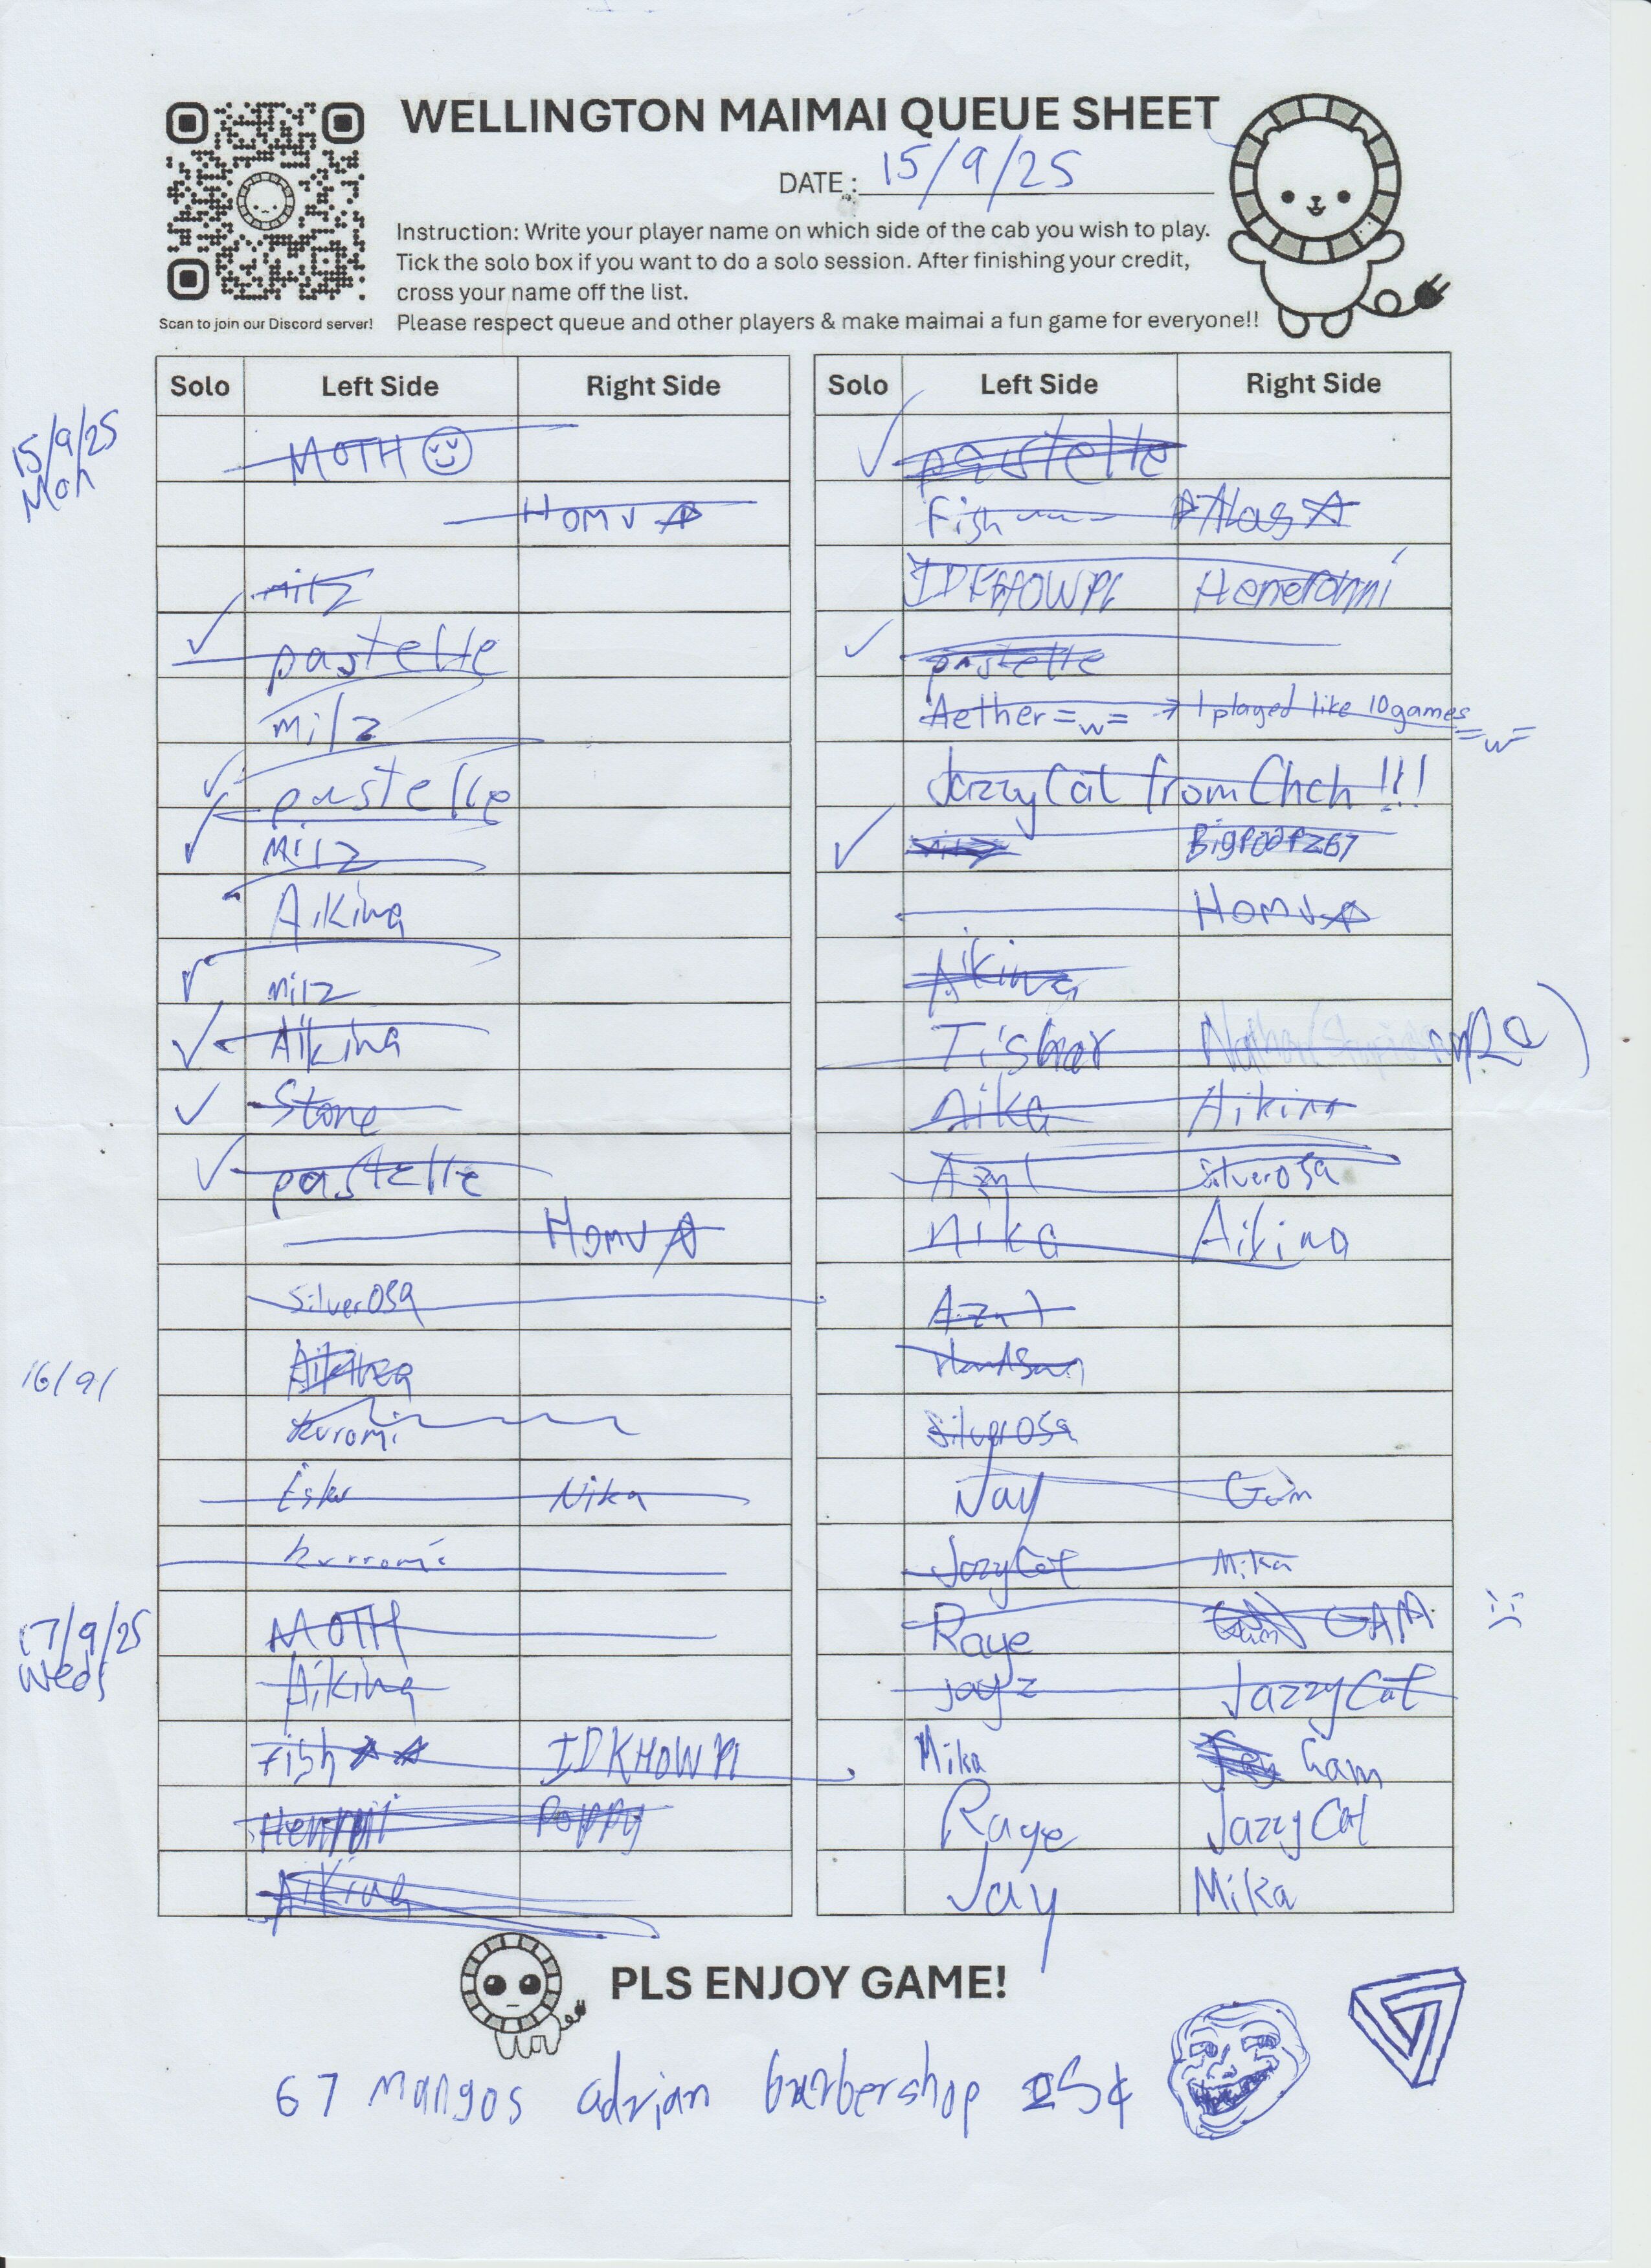 WELLINGTON MAIMAI QUEUE SHEET
DATE: 15/9/25
Instruction: Write your player name on which side of the cab you wish to play.
Tick the solo box if you want to do a solo session. After finishing your credit,
cross your name off the list.
Please respect queue and other players & make maimai a fun game for everyone!!
Scan to join our Discord server!
Solo Left Side Right Side
15/9/25
Mon
MOTH
Homu
milz
pastelle
milz
pastelle
Milz
Aikina
milz
Aikina
Stone
pastelle
Homu
SilverOSa
16/9/
Aikina
kuromi
Nika
kurromi
17/9/25
Weds
MOTH
Aikina
Fish IDKHOWPl
Poppy
Aikina
Solo Left Side Right Side
pastelle
Fish
IDKHOWPL
pastelle
Aether =w= → I played like 10 games =w=
JazzyCat from Chch !!!
milz
Homu
Aikina
Nika Aikina
SilverOSa
Nika Aikina
SilverOSa
Jay Gam
JazyCat Mika
Raye Gam GAM
jayz JazzyCat
Mika Jay Gam
Raye JazzyCat
Jay Mika
PLS ENJOY GAME!
67 mangos adrian barbershop 25¢